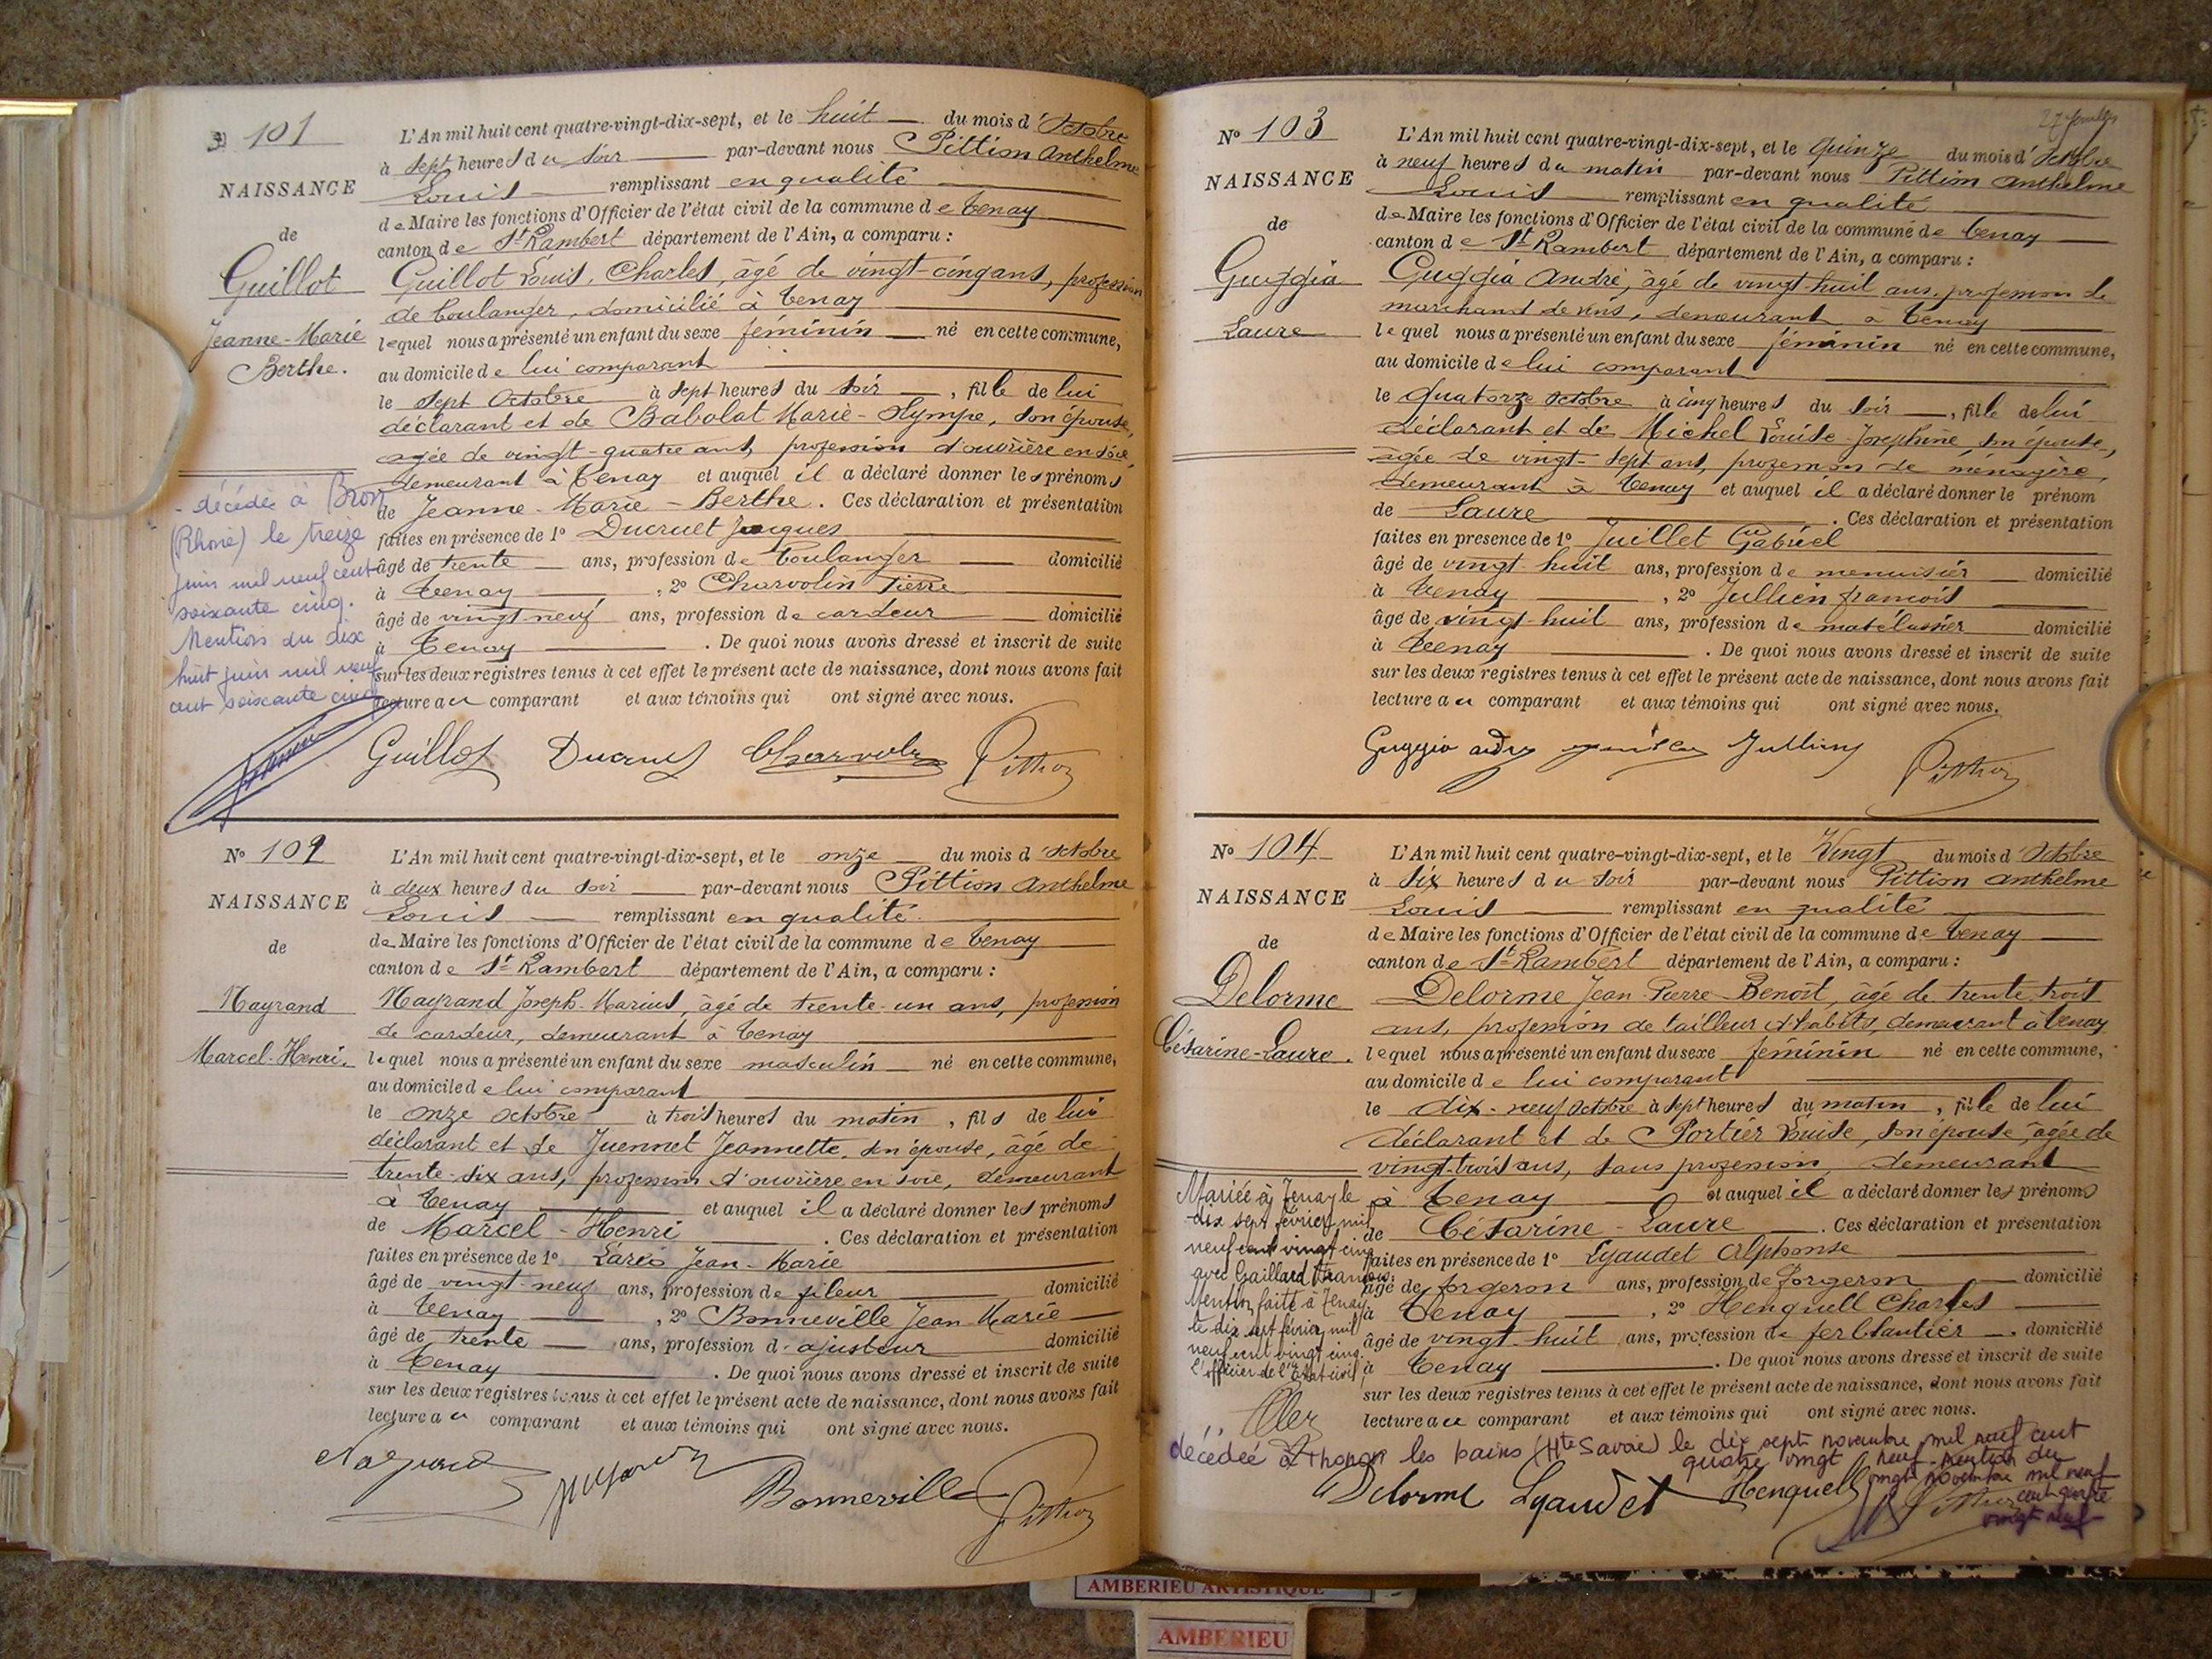 N° 101
NAISSANCE
de
Guillot
Jeanne-Marie
Berthe.
L'An mil huit cent quatre-vingt-dix-sept, et le huit du mois d'Octobre
à sept heures du soir par-devant nous Pittion Anthelme
Louis remplissant en qualité
de Maire les fonctions d'Officier de l'état civil de la commune de Tenay
canton de St Rambert département de l'Ain, a comparu :
Guillot Louis, Charles, âgé de vingt-cinq ans, profession
de boulanger, domicilié à Tenay
lequel nous a présenté un enfant du sexe féminin né en cette commune,
au domicile de lui comparant
le sept Octobre à sept heures du soir, fille de lui
déclarant et de Babolat Marie-Olympe, son épouse,
agée de vingt-quatre ans, profession d'ouvrière en soie,
demeurant à Tenay et auquel il a déclaré donner les prénoms
de Jeanne-Marie-Berthe. Ces déclaration et présentation
faites en présence de 1° Ducruet Jacques
âgé de trente ans, profession de boulanger domicilié
à Tenay, 2° Charvolin Pierre
âgé de vingt neuf ans, profession de cardeur domicilié
à Tenay. De quoi nous avons dressé et inscrit de suite
sur les deux registres tenus à cet effet le présent acte de naissance, dont nous avons fait
lecture au comparant et aux témoins qui ont signé avec nous.
- décédée à Bron
(Rhône) le treize
juin mil neuf cent
soixante cinq.
Mention du dix
huit juin mil neuf
cent soixante cinq
Guillot Ducruet Charvolin Pittion
N° 102
NAISSANCE
de
Nayrand
Marcel-Henri.
L'An mil huit cent quatre-vingt-dix-sept, et le onze du mois d'Octobre
à deux heures du soir par-devant nous Pittion Anthelme
Louis remplissant en qualité
de Maire les fonctions d'Officier de l'état civil de la commune de Tenay
canton de St Rambert département de l'Ain, a comparu :
Nayrand Joseph-Marius, âgé de trente-un ans, profession
de cardeur, demeurant à Tenay
lequel nous a présenté un enfant du sexe masculin né en cette commune,
au domicile de lui comparant
le onze Octobre à trois heures du matin, fils de lui
déclarant et de Juennet Jeannette, son épouse, âgé de
trente-six ans, profession d'ouvrière en soie, demeurant
à Tenay et auquel il a déclaré donner les prénoms
de Marcel-Henri. Ces déclaration et présentation
faites en présence de 1° Jean-Marie
âgé de vingt-neuf ans, profession de fileur domicilié
à Tenay, 2° Bonneville Jean Marie
âgé de trente ans, profession d'ajusteur domicilié
à Tenay. De quoi nous avons dressé et inscrit de suite
sur les deux registres tenus à cet effet le présent acte de naissance, dont nous avons fait
lecture au comparant et aux témoins qui ont signé avec nous.
Nayrand Bonneville Pittion
N° 103
NAISSANCE
de
Guggia
Laure
L'An mil huit cent quatre-vingt-dix-sept, et le Quinze du mois d'Octobre
à neuf heures du matin par-devant nous Pittion Anthelme
Louis remplissant en qualité
de Maire les fonctions d'Officier de l'état civil de la commune de Tenay
canton de St Rambert département de l'Ain, a comparu :
Guggia André, âgé de vingt-huit ans, profession de
marchand de vins, demeurant à Tenay
lequel nous a présenté un enfant du sexe féminin né en cette commune,
au domicile de lui comparant
le Quatorze Octobre à cinq heures du soir, fille de lui
déclarant et de Michel Louise-Joséphine, son épouse,
agée de vingt-sept ans, profession de ménagère,
demeurant à Tenay et auquel il a déclaré donner le prénom
de Laure. Ces déclaration et présentation
faites en presence de 1° Juillet Gabriel
âgé de vingt-huit ans, profession de menuisier domicilié
à Tenay, 2° Jullien françois
âgé de vingt-huit ans, profession de matelassier domicilié
à Tenay. De quoi nous avons dressé et inscrit de suite
sur les deux registres tenus à cet effet le présent acte de naissance, dont nous avons fait
lecture au comparant et aux témoins qui ont signé avec nous.
Jullien Pittion
N° 104
NAISSANCE
de
Delorme
Césarine-Laure.
L'An mil huit cent quatre-vingt-dix-sept, et le Vingt du mois d'Octobre
à six heures du soir par-devant nous Pittion Anthelme
Louis remplissant en qualité
de Maire les fonctions d'Officier de l'état civil de la commune de Tenay
canton de St Rambert département de l'Ain, a comparu :
Delorme Jean-Pierre Benoît, âgé de trente trois
ans, profession de tailleur d'habits, demeurant à Tenay
lequel nous a présenté un enfant du sexe féminin né en cette commune,
au domicile de lui comparant
le dix-neuf Octobre à sept heures du matin, fille de lui
déclarant et de Portier Louise, son épouse, âgée de
vingt-trois ans, sans profession, demeurant
à Tenay et auquel il a déclaré donner les prénoms
de Césarine-Laure. Ces déclaration et présentation
faites en présence de 1° Lyaudet Alphonse
âgé de forgeron ans, profession de forgeron domicilié
à Tenay, 2° Henquell Charles
âgé de vingt-huit ans, profession de ferblantier domicilié
à Tenay. De quoi nous avons dressé et inscrit de suite
sur les deux registres tenus à cet effet le présent acte de naissance, dont nous avons fait
lecture au comparant et aux témoins qui ont signé avec nous.
Mariée à Tenay le
dix sept février mil
neuf cent vingt cinq
avec Gaillard François.
Mention faite à Tenay
le dix sept février mil
neuf cent vingt cinq
L'officier de l'état civil
décédée à Thonon les bains (Hte Savoie) le dix sept novembre mil neuf cent
quatre vingt neuf - mention du
vingt novembre mil neuf
cent quatre
vingt neuf -
Delorme Lyaudet Henquell Pittion
AMBERIEU ARTISTIQUE
AMBERIEU